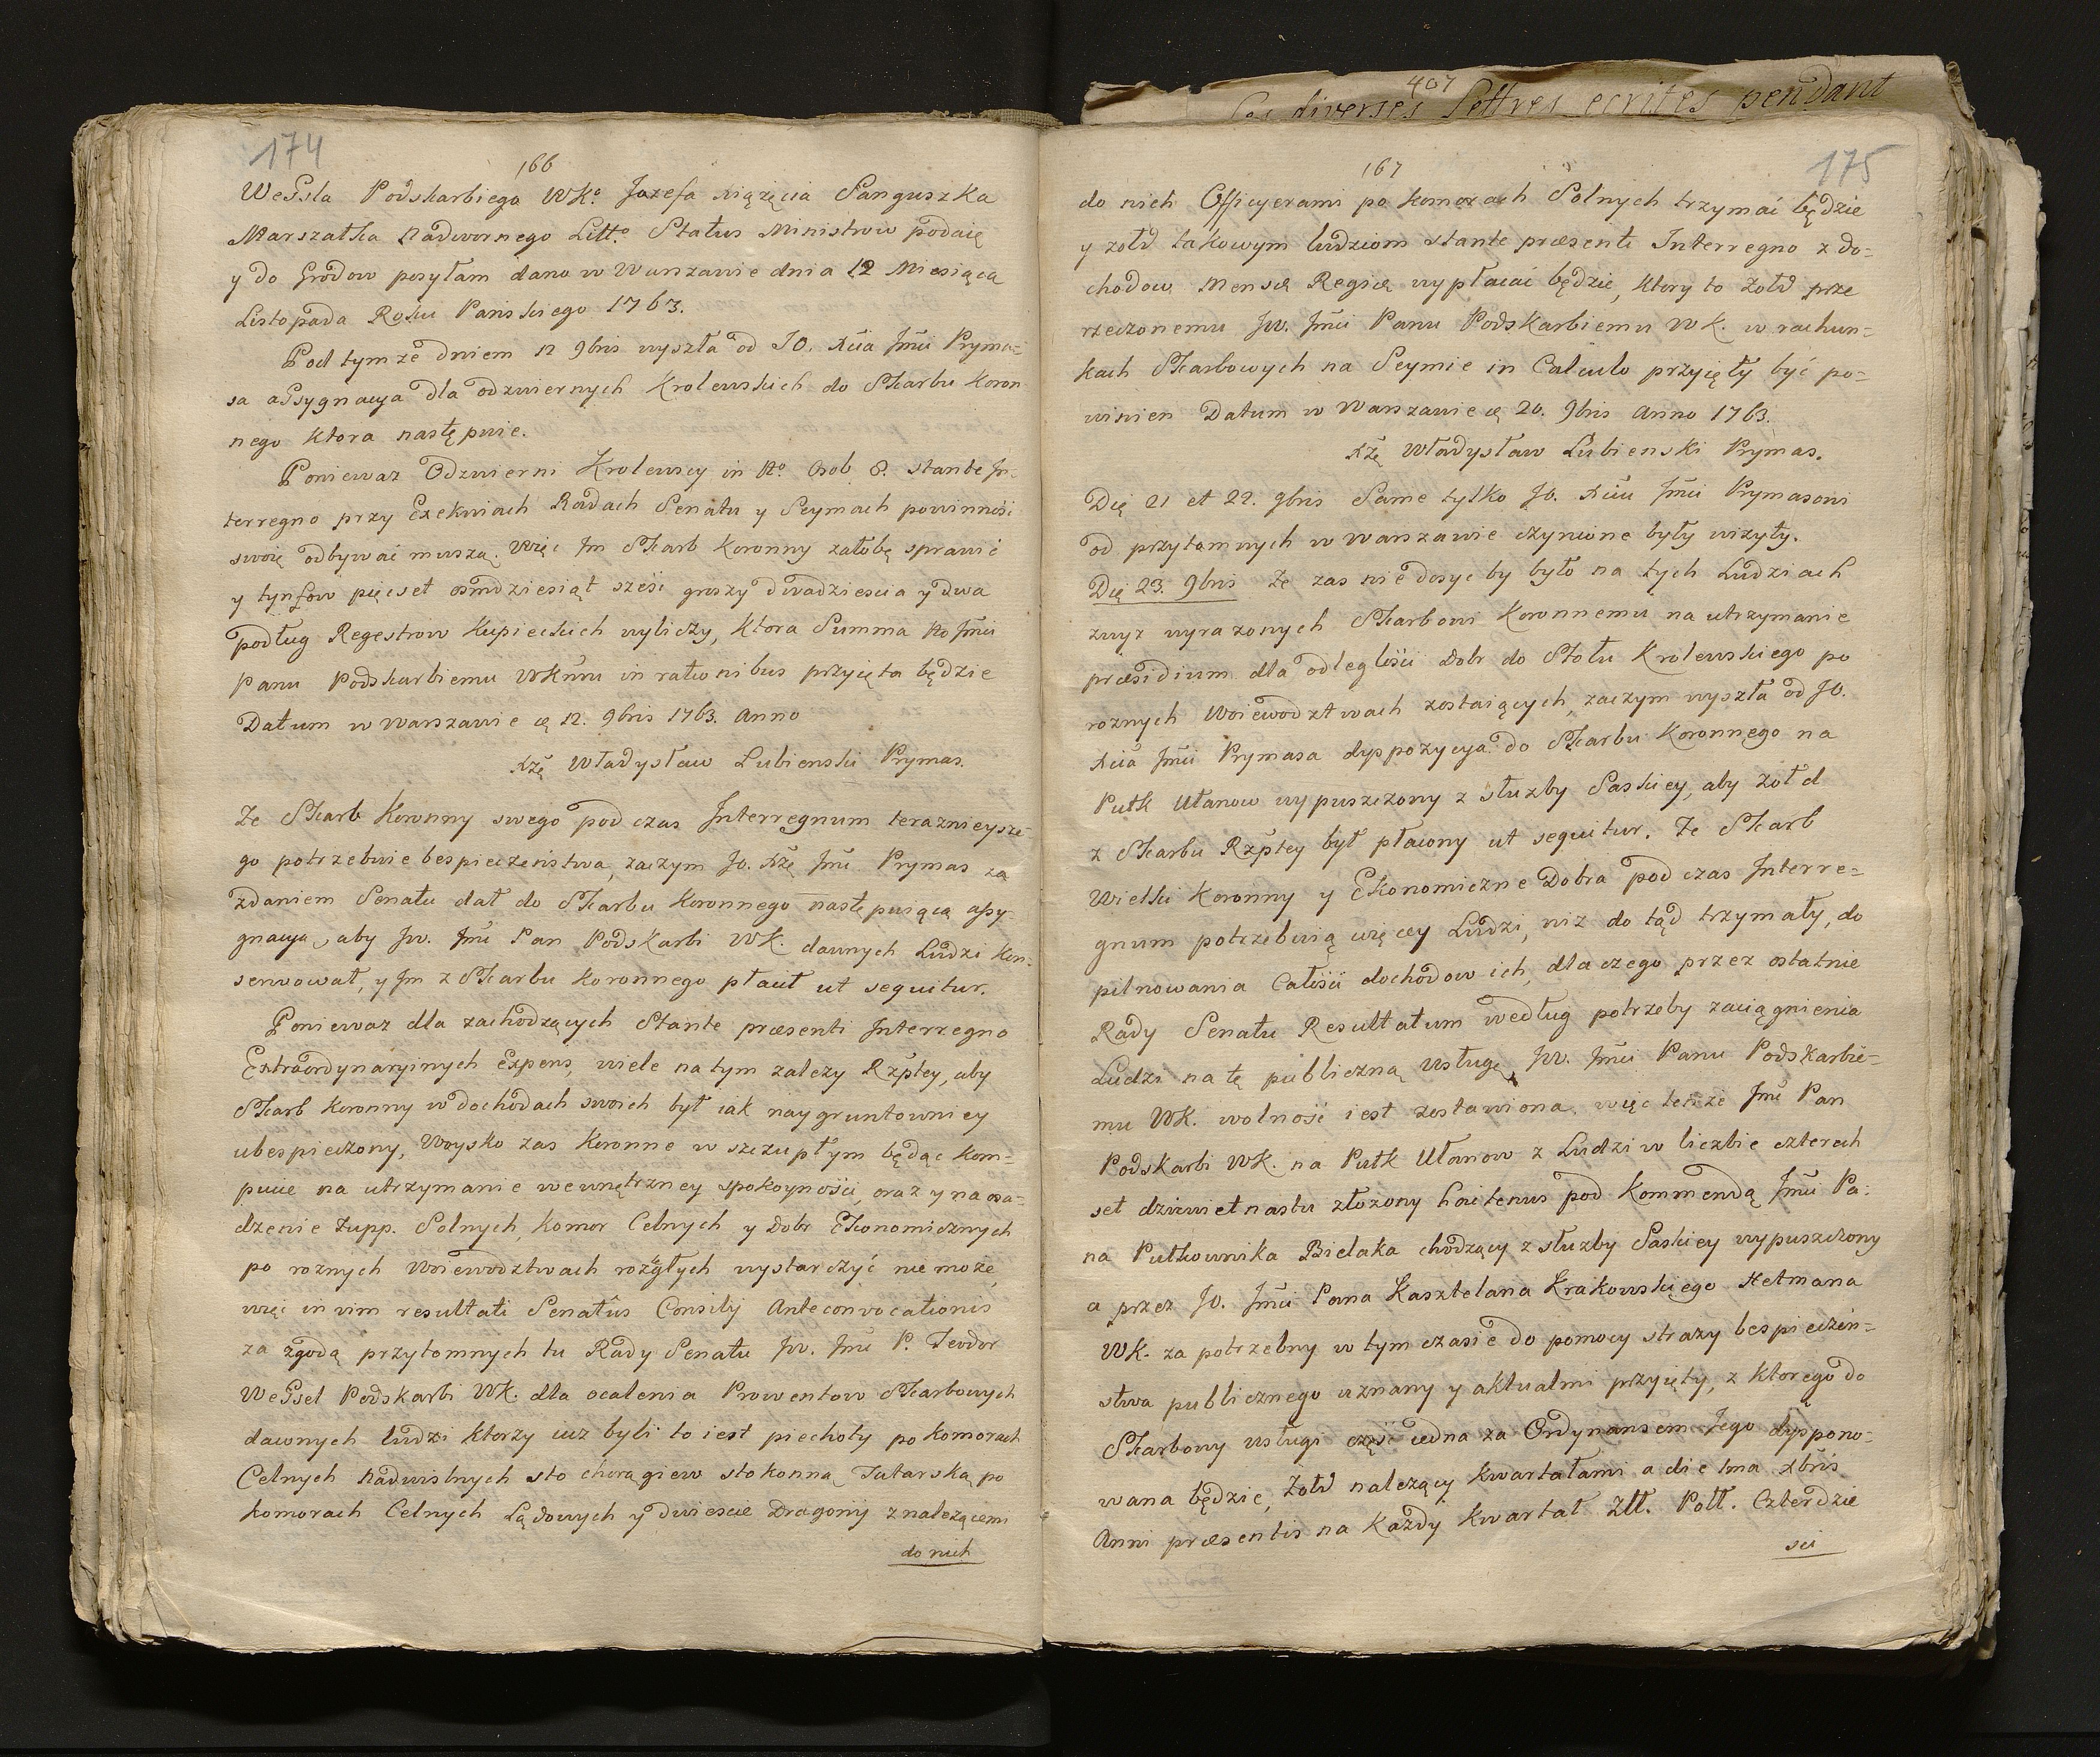 174
166
Wessla Podskarbiego WKo. Jozefa Xiążęcia Sanguszka
Marszałka Nadwornego Litto. Status Ministrow podaię
y do Grodow posyłam dano w Warszawie dnia 12 Miesiąca
Listopada Roku Panskiego 1763.
Pod tym że dniem 12 9bris wyszła od JO. Xcia Jmci Pryma-
sa assygnacya dla odzwiernych Krolewskich do Skarbu Koron
nego ktora następuie.
Poniewaz Odzwierni Krolewscy in No. Osob 8. stante In-
terregno przy Exekwiach Radach Senatu y Seymach powinności
swoię odbywać muszą. Więc Im Skarb Koronny załobę sprawić
y tynfow pięcset osmdziesiąt sześć groszy dwadziescia y dwa
podług Regestrow Kupieckich wyliczy, ktora Summa Jmci
Panu Podskarbiemu WKmu in rationibus przyięta będzie
Datum w Warszawie 12. 9bris 1763. Anno
Xżę Władysław Lubienski Prymas.
Ze Skarb Koronny swego pod czas Interregnum teraznieysze-
go potrzebuie bespieczeństwa, zaczym Jo. Xżę Jmć Prymas za
zdaniem Senatu dał do Skarbu Koronnego następuiącą assy-
gnacyą, aby Jw. Jmć Pan Podskarbi WK. dawnych Ludzi kon-
serwował, y Im z Skarbu Koronnego płacił ut sequitur.
Poniewaz dla zachodzących Stante præsenti Interregno
Extraordynaryinych Expens, wiele na tym zalezy Rzptey, aby
Skarb Koronny w dochodach swoich był iak naygruntowniey
ubespieczony, Woysko zas Koronne w szczupłym będąc kom-
pucie na utrzymanie wewnętrzney spokoyności, oraz y na osa-
dzenie Zupp. Solnych, Komor Celnych y Dobr Ekonomicznych
po roznych Woiewodztwach rozległych wystarczyć nie może,
więc in vim resultati Senatûs Consilij Anteconvocationis
za zgodą przytomnych tu Rady Senatu Jw. Jmć P. Teodor
Wessel Podskarbi WK. dla ocalenia Prowentow Skarbowych
dawnych ludzi ktorzy iuz byli to iest piechoty po komorach
Celnych Nadwislnych sto chorągiew sto konną Tatarską po
komorach Celnych Lądowych y dwiescie Dragonij z nalezącemi
do nich
407
Les diverses Lettres ecrites pendant
167
175
do nich Officyerami po komorach Solnych trzymać będzie
y zołd takowym ludziom stante præsenti Interregno z do-
chodow Mensæ Regiæ wypłacać będzie, ktory to żołd prze
rzeczonemu Jw. Jmci Panu Podskarbiemu WK. w rachun-
kach Skarbowych na Seymie in Calculo przyięty być po-
winien Datum w Warszawie 20. 9bris Anno 1763.
Xżę Władysław Lubienski Prymas.
Die 21 et 22. 9bris Same tylko Jo. Xciu Jmci Prymasowi
od przytomnych w Warszawie czynione były wizyty.
Die 23. 9bris Ze zas nie dosyc by było na tych Ludziach
zwyz wyrazonych Skarbowi Koronnemu na utrzymanie
præsidium dla odległości Dobr do Stołu Krolewskiego po
roznych Woiewodztwach zostaiących, zaczym wyszła od JO.
Xcia Jmci Prymasa dyspozycya do Skarbu Koronnego na
Pułk Ułanow wypuszczony z służby Saskiey, aby żołd
z Skarbu Rzptey był płacony ut sequitur. Ze Skarb
Wielki Koronny y Ekonomiczne Dobra pod czas Interre-
gnum potrzebuią więcey Ludzi, niz do tąd trzymały, do
pilnowania Całości dochodow ich, dla czego przez ostatnie
Rady Senatu Resultatum według potrzeby zaciągnienia
Ludzi na tę publiczną usługę, Jw. Jmci Panu Podskarbie-
mu WK. wolność iest zostawiona. więc tenże Jmć Pan
Podskarbi WK. na Pułk Ułanow z Ludzi w liczbie czterech
set dziewietnastu złozony hactenus pod Kommendą Jmci Pa-
na Pułkownika Bielaka chodzący z służby Saskiey wypuszczony
a przez Jo. Jmci Pana Kasztelana Krakowskiego Hetmana
WK. za potrzebny w tym czasie do pomocy strazy bespieczeń-
stwa publicznego uznany y aktualnie przyięty, z ktorego do
Skarbowy usługi część iedna za Ordynansem Jego dyspono-
wana będzie, Zołd nalezący kwartałami a die 1ma Xbris
Anni præsentis na kazdy kwartał Złł. Poll. Czterdzie
sci